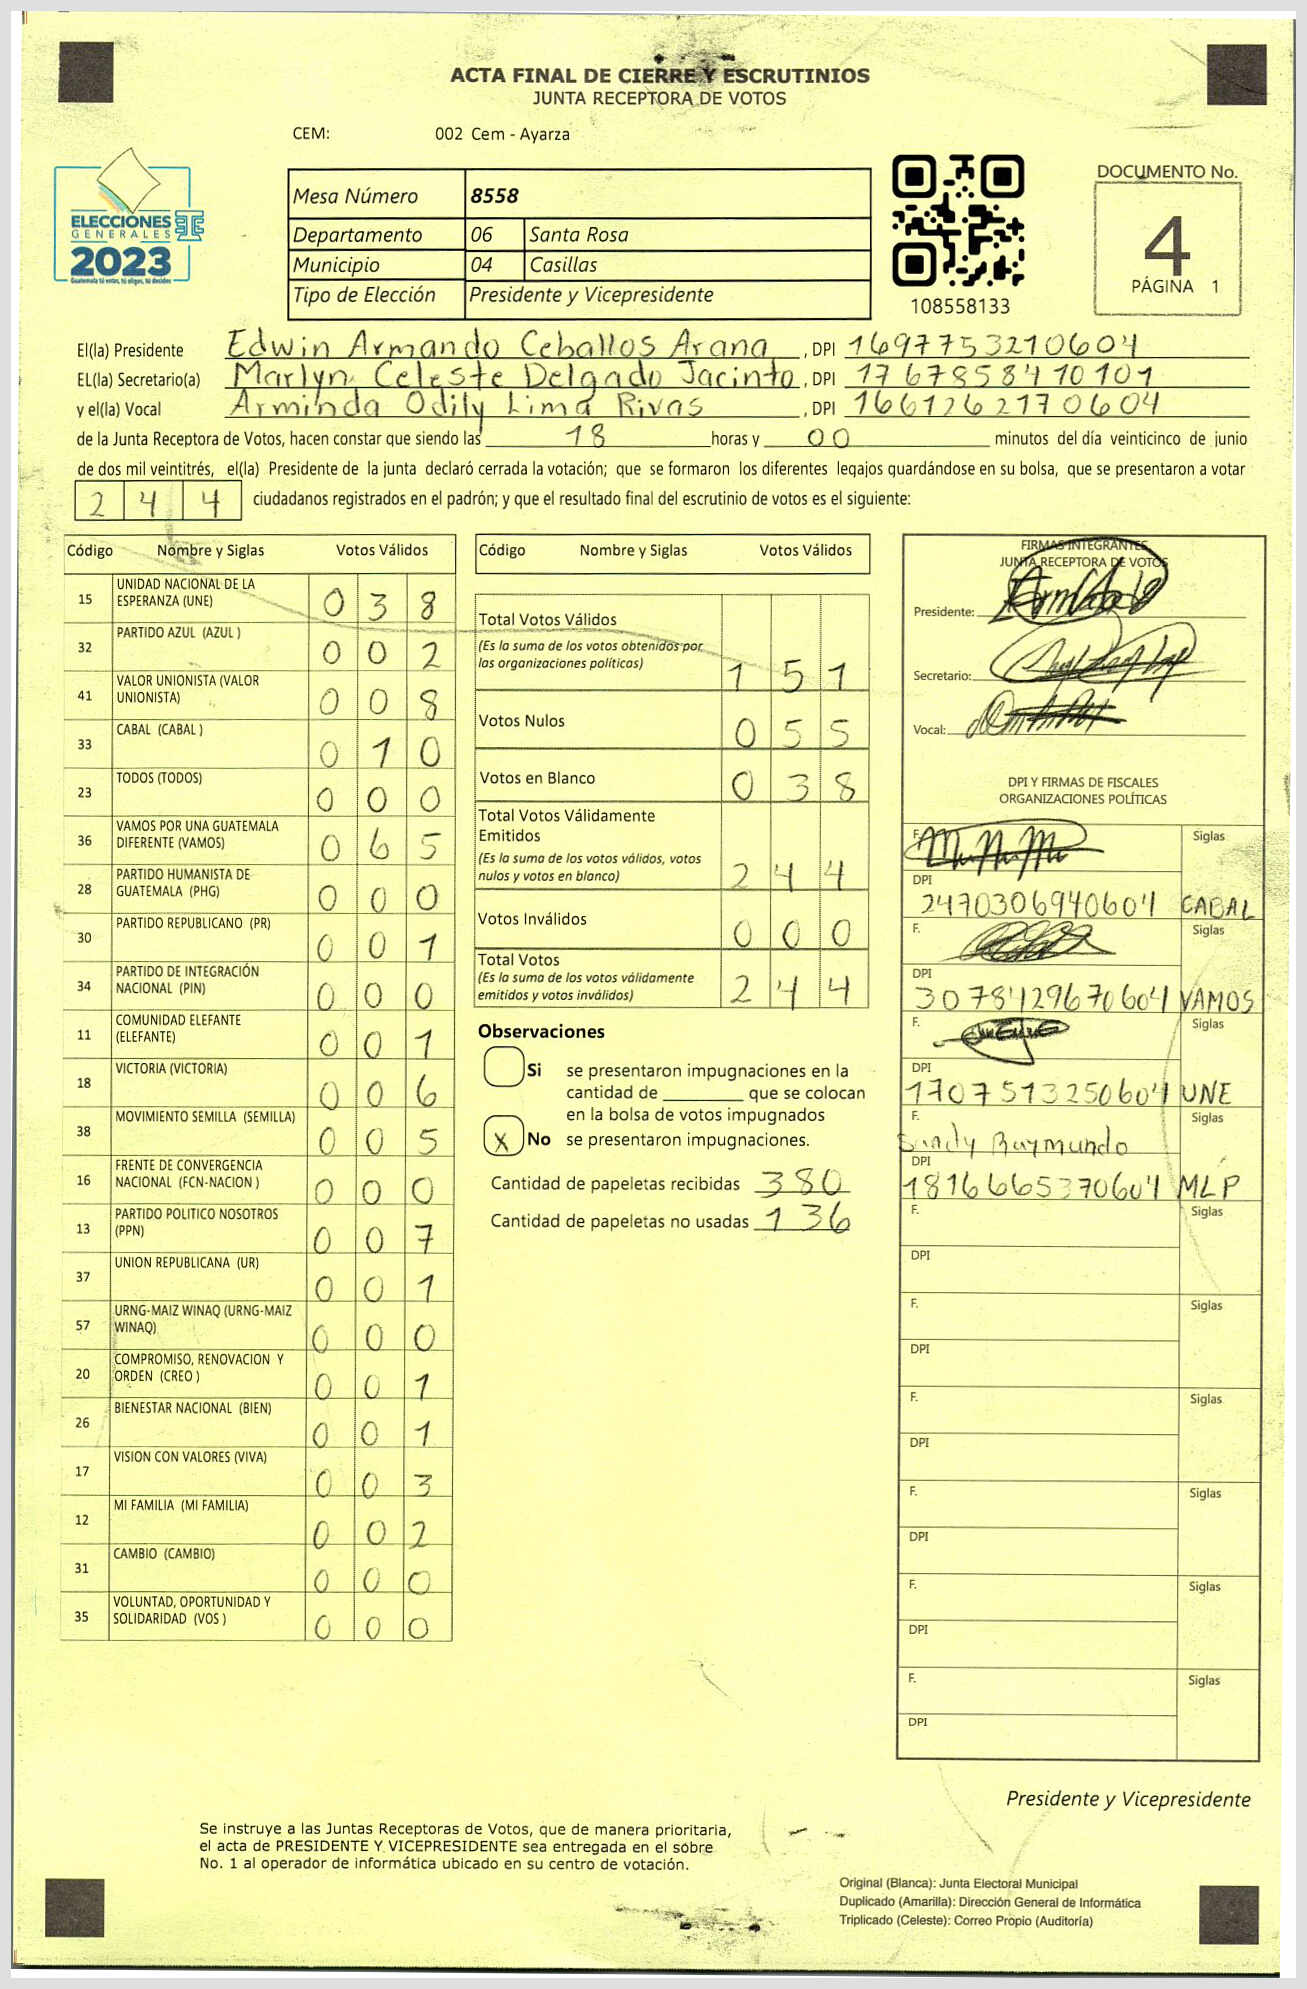 ACTA FINAL DE CIERRE Y ESCRUTINIOS
JUNTA RECEPTORA DE VOTOS
CEM: 002 Cem - Ayarza
ELECCIONES
GENERALES
2023
Guatemala tú eres, tú eliges, tú decides
Mesa Número 8558
Departamento 06 Santa Rosa
Municipio 04 Casillas
Tipo de Elección Presidente y Vicepresidente
108558133
DOCUMENTO No.
4
PÁGINA 1
El(la) Presidente Edwin Armando Ceballos Arana, DPI 1697753210604
EL(la) Secretario(a) Marlyn Celeste Delgado Jacinto, DPI 1767858410101
y el(la) Vocal Arminda Odily Lima Rivas, DPI 1661262170604
de la Junta Receptora de Votos, hacen constar que siendo las 18 horas y 00 minutos del día veinticinco de junio
de dos mil veintitrés, el(la) Presidente de la junta declaró cerrada la votación; que se formaron los diferentes legajos quardándose en su bolsa, que se presentaron a votar
244 ciudadanos registrados en el padrón; y que el resultado final del escrutinio de votos es el siguiente:
Código Nombre y Siglas Votos Válidos
15 UNIDAD NACIONAL DE LA ESPERANZA (UNE) 038
32 PARTIDO AZUL (AZUL ) 002
41 VALOR UNIONISTA (VALOR UNIONISTA) 008
33 CABAL (CABAL ) 010
23 TODOS (TODOS) 000
36 VAMOS POR UNA GUATEMALA DIFERENTE (VAMOS) 065
28 PARTIDO HUMANISTA DE GUATEMALA (PHG) 000
30 PARTIDO REPUBLICANO (PR) 001
34 PARTIDO DE INTEGRACIÓN NACIONAL (PIN) 000
11 COMUNIDAD ELEFANTE (ELEFANTE) 001
18 VICTORIA (VICTORIA) 006
38 MOVIMIENTO SEMILLA (SEMILLA) 005
16 FRENTE DE CONVERGENCIA NACIONAL (FCN-NACION ) 000
13 PARTIDO POLITICO NOSOTROS (PPN) 007
37 UNION REPUBLICANA (UR) 001
57 URNG-MAIZ WINAQ (URNG-MAIZ WINAQ) 000
20 COMPROMISO, RENOVACION Y ORDEN (CREO ) 001
26 BIENESTAR NACIONAL (BIEN) 001
17 VISION CON VALORES (VIVA) 003
12 MI FAMILIA (MI FAMILIA) 002
31 CAMBIO (CAMBIO) 000
35 VOLUNTAD, OPORTUNIDAD Y SOLIDARIDAD (VOS ) 000
Código Nombre y Siglas Votos Válidos
Total Votos Válidos
(Es la suma de los votos obtenidos por
las organizaciones políticas) 151
Votos Nulos 055
Votos en Blanco 038
Total Votos Válidamente
Emitidos
(Es la suma de los votos válidos, votos
nulos y votos en blanco) 244
Votos Inválidos 000
Total Votos
(Es la suma de los votos válidamente
emitidos y votos inválidos) 244
Observaciones
Si se presentaron impugnaciones en la
cantidad de ________ que se colocan
en la bolsa de votos impugnados
X No se presentaron impugnaciones.
Cantidad de papeletas recibidas 380
Cantidad de papeletas no usadas 136
FIRMAS INTEGRANTES
JUNTA RECEPTORA DE VOTOS
Presidente:
Secretario:
Vocal:
DPI Y FIRMAS DE FISCALES
ORGANIZACIONES POLÍTICAS
F. Siglas
DPI
2470306940604 CABAL
F. Siglas
DPI
3078429670604 VAMOS
F. Siglas
DPI
1707513250604 UNE
F. Siglas
Sandy Raymundo
DPI
1816665370604 MLP
F. Siglas
DPI
F. Siglas
DPI
F. Siglas
DPI
F. Siglas
DPI
F. Siglas
DPI
F. Siglas
DPI
Presidente y Vicepresidente
Se instruye a las Juntas Receptoras de Votos, que de manera prioritaria,
el acta de PRESIDENTE Y VICEPRESIDENTE sea entregada en el sobre
No. 1 al operador de informática ubicado en su centro de votación.
Original (Blanca): Junta Electoral Municipal
Duplicado (Amarilla): Dirección General de Informática
Triplicado (Celeste): Correo Propio (Auditoría)